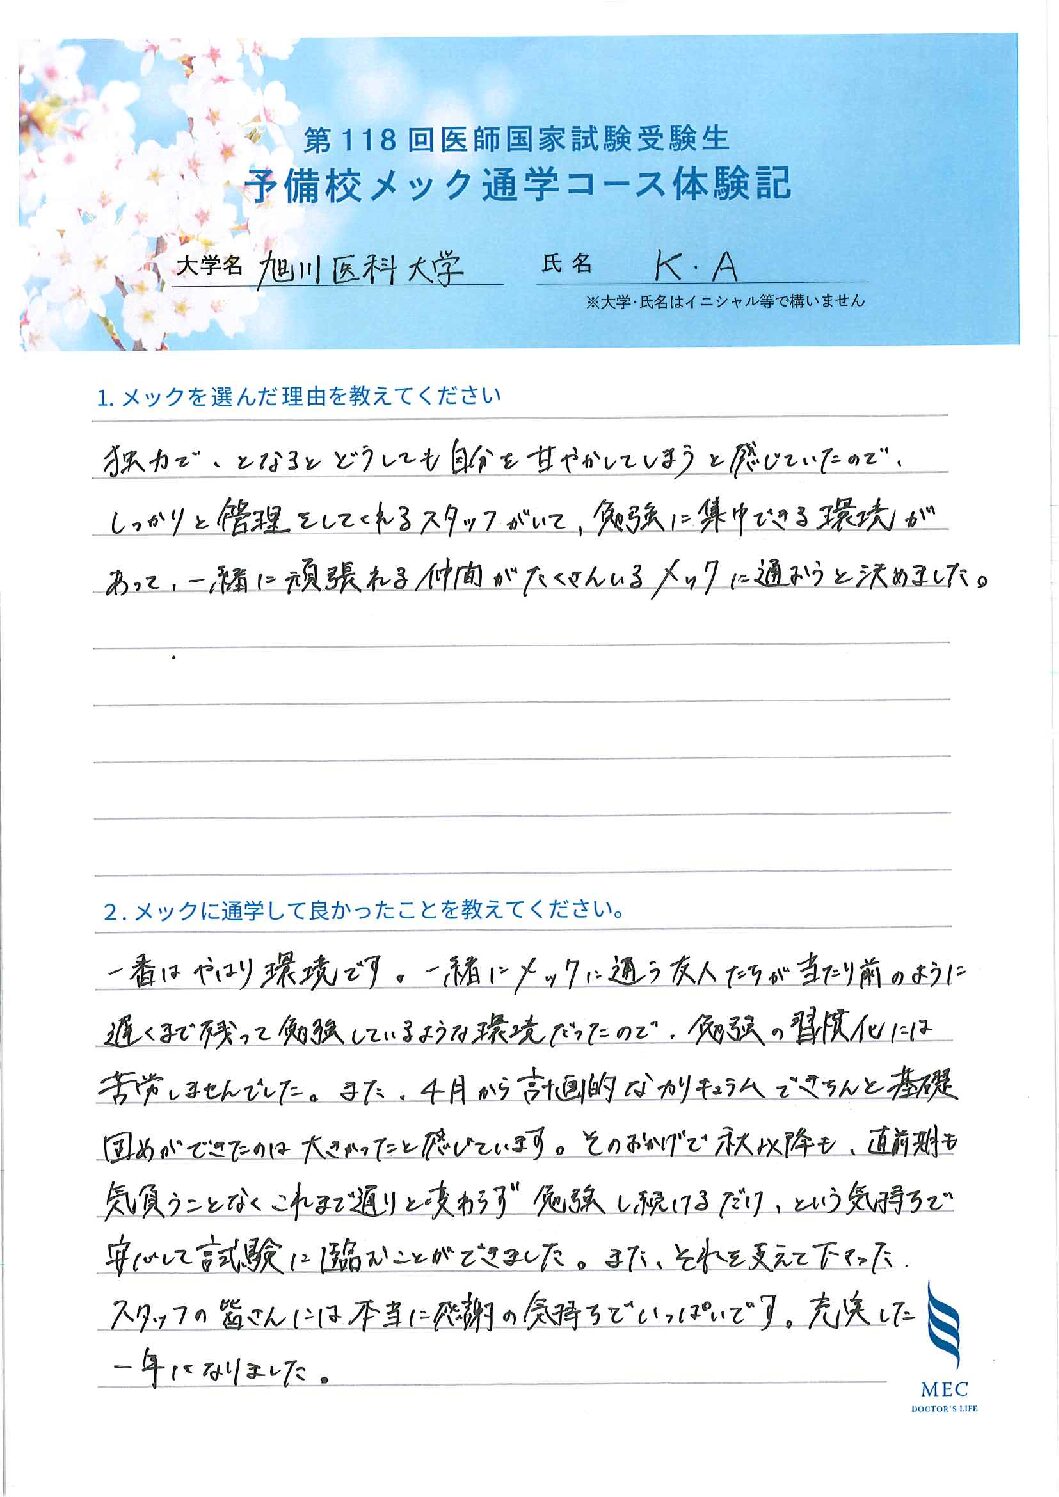 第118回医師国家試験受験生
予備校メック通学コース体験記
大学名 旭川医科大学 氏名 K・A
※大学・氏名はイニシャル等で構いません
1. メックを選んだ理由を教えてください
独力で、となるとどうしても自分を甘やかしてしまうと感じていたので、
しっかりと管理をしてくれるスタッフがいて、勉強に集中できる環境が
あって、一緒に頑張れる仲間がたくさんいるメックに通おうと決めました。
2. メックに通学して良かったことを教えてください。
一番はやはり環境です。一緒にメックに通う友人たちが当たり前のように
遅くまで残って勉強しているような環境だったので、勉強の習慣化には
苦労しませんでした。また、4月から計画的なカリキュラムできちんと基礎
固めができたのは大きかったと感じています。そのおかげで秋以降も、直前期も
気負うことなくこれまで通りと変わらず勉強し続けるだけ、という気持ちで
安心して試験に臨むことができました。また、それを支えて下さった
スタッフの皆さんには本当に感謝の気持ちでいっぱいです。充実した
一年になりました。
MEC
DOCTOR'S LIFE